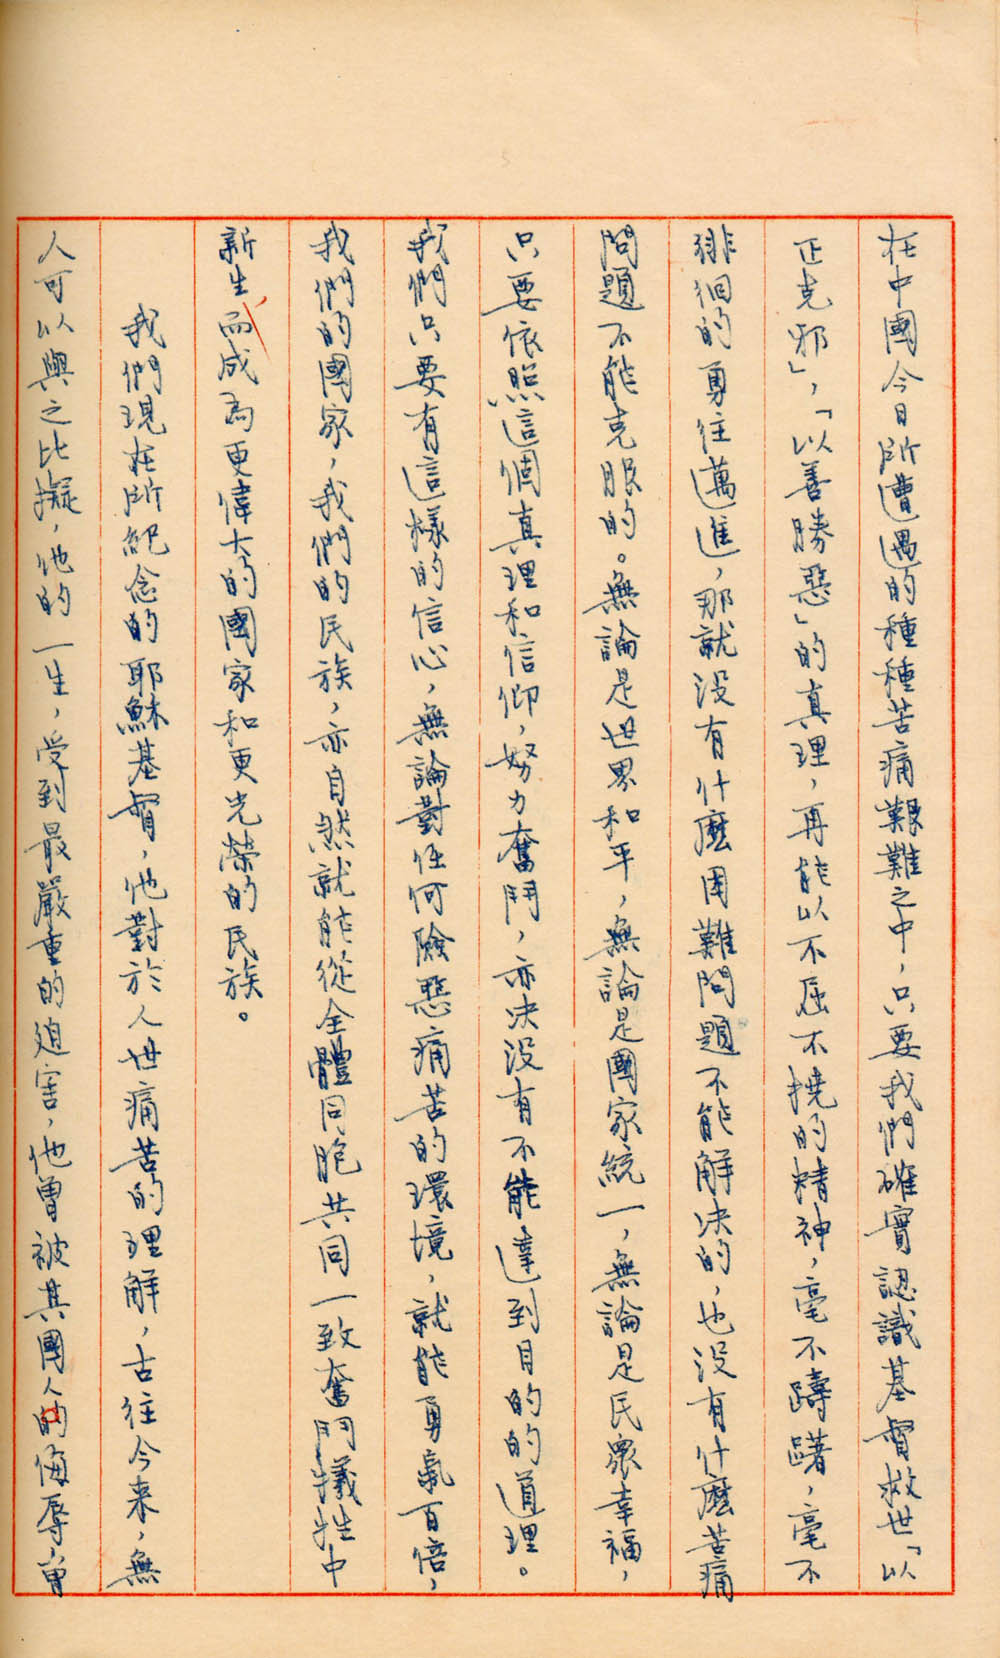 在中國今日所遭遇的種種苦痛艱難之中，只要我們確實認識基督救世「以
正克邪」，「以善勝惡」的真理，再能以不屈不撓的精神，毫不躊躇，毫不
徘徊的勇往邁進，那就没有什麽困難問題不能解决的，也没有什麽苦痛
問題不能克服的。無論是世界和平，無論是國家統一，無論是民衆幸福，
只要依照這個真理和信仰，努力奮鬥，亦决没有不能達到目的的道理。
我們只要有這樣的信心，無論對任何險惡痛苦的環境，就能勇氣百倍，
我們的國家，我們的民族，亦自然就能從全體同胞共同一致奮鬥犠牲中
新生，而成為更偉大的國家和更光榮的民族。
我們現在所紀念的耶穌基督，他對於人世痛苦的理解，古往今来，無
人可以與之比擬，他的一生，受到最嚴重的迫害，他曾被其國人的侮辱，曾